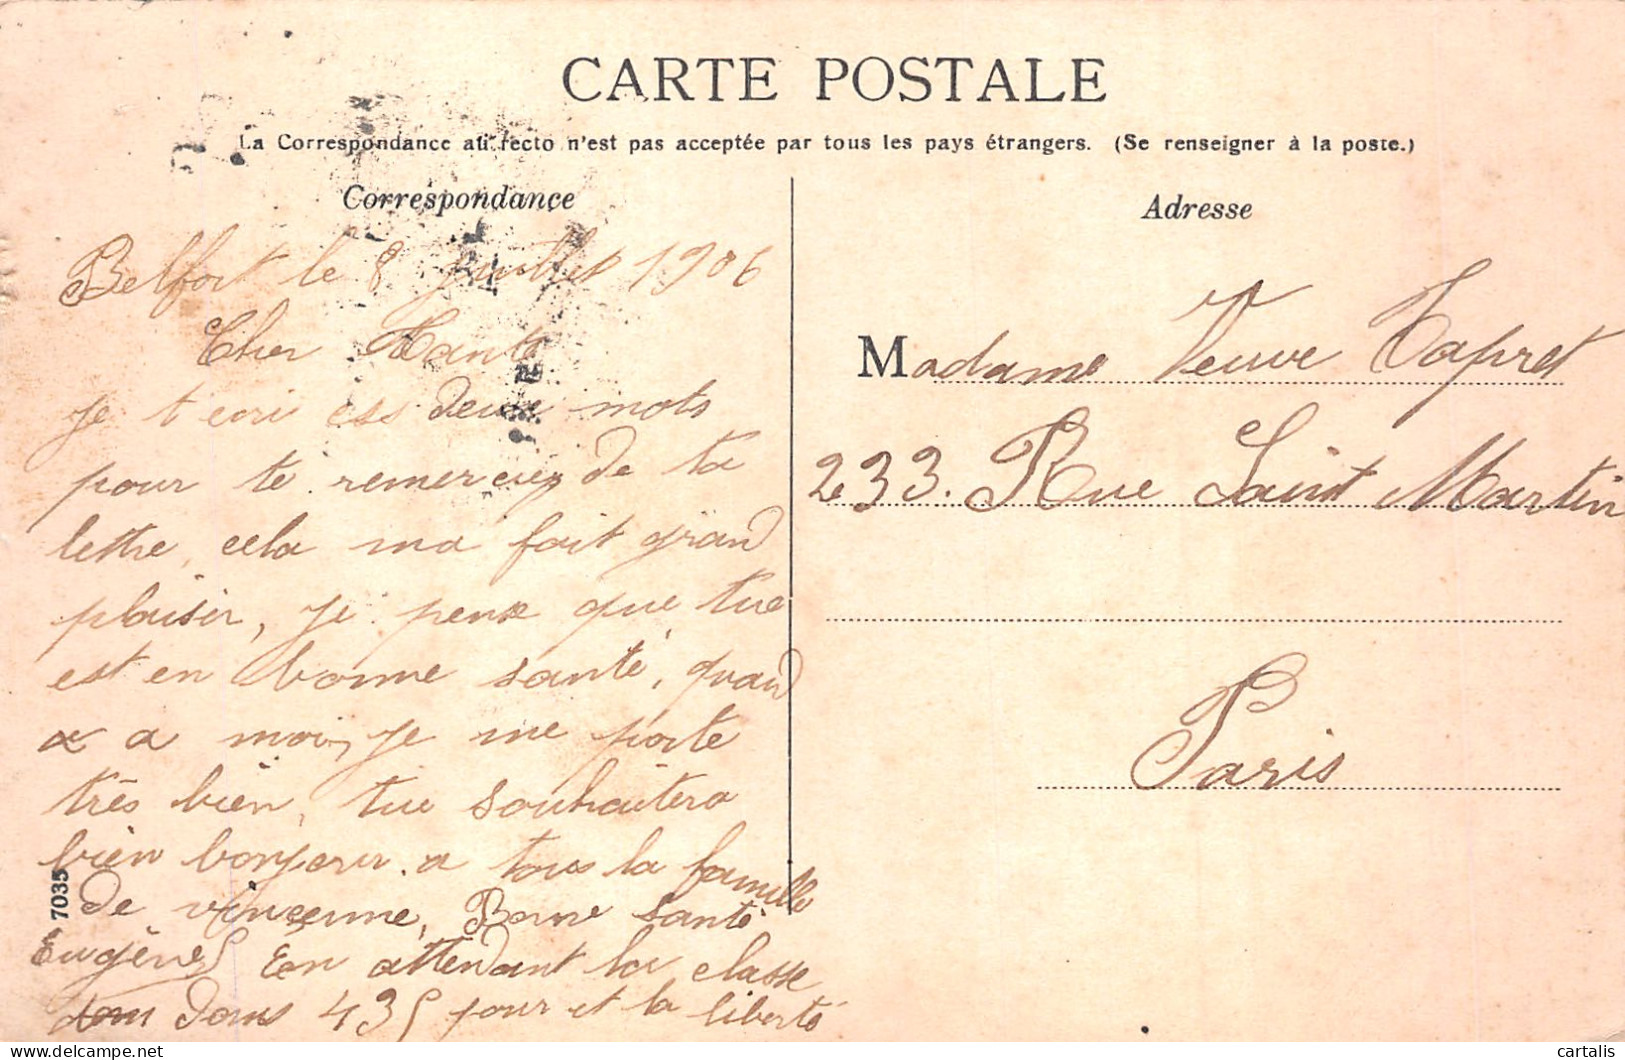 CARTE POSTALE
La Correspondance au recto n'est pas acceptée par tous les pays étrangers. (Se renseigner à la poste.)
Correspondance
Belfort le 8 juillet 1906
Cher Tante
je t ecri ces deux mots
pour te remerciez de ta
lettre, cela ma fait grand
plaisir, je pense que tue
est en bonne santé, quand
a a moi, je me porte
très bien, tue souhaitera
bien bonjour a tous la famille
de vincenne, Bonne santé
Eugène En attendant la classe
dans 435 jour et la liberté
7035
Adresse
Madame Veuve Tapret
233. Rue Saint Martin
Paris
cartalis